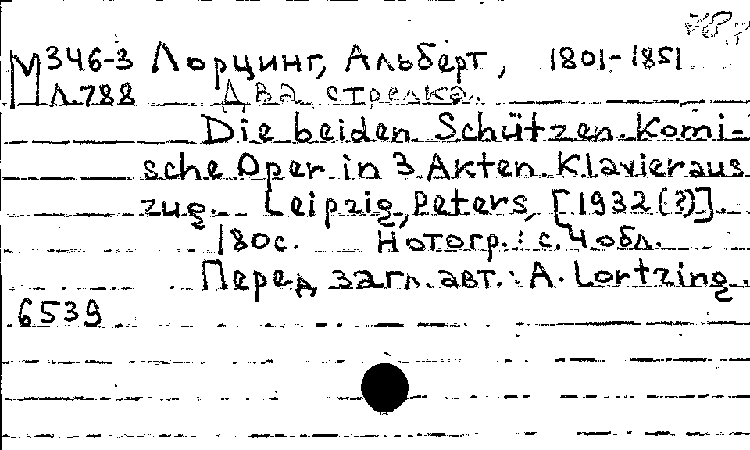 М346-3 Лорцинг, Альберт, 1801-1851
Л.788 Два стрелка.
Die beiden Schützen. Komi-
sche Oper in 3 Akten. Klavieraus
zug. Leipzig, Peters, [1932(?)].
180 с. Нотогр.: с. 4 обл.
Перед загл. авт.: A. Lortzing.
6539